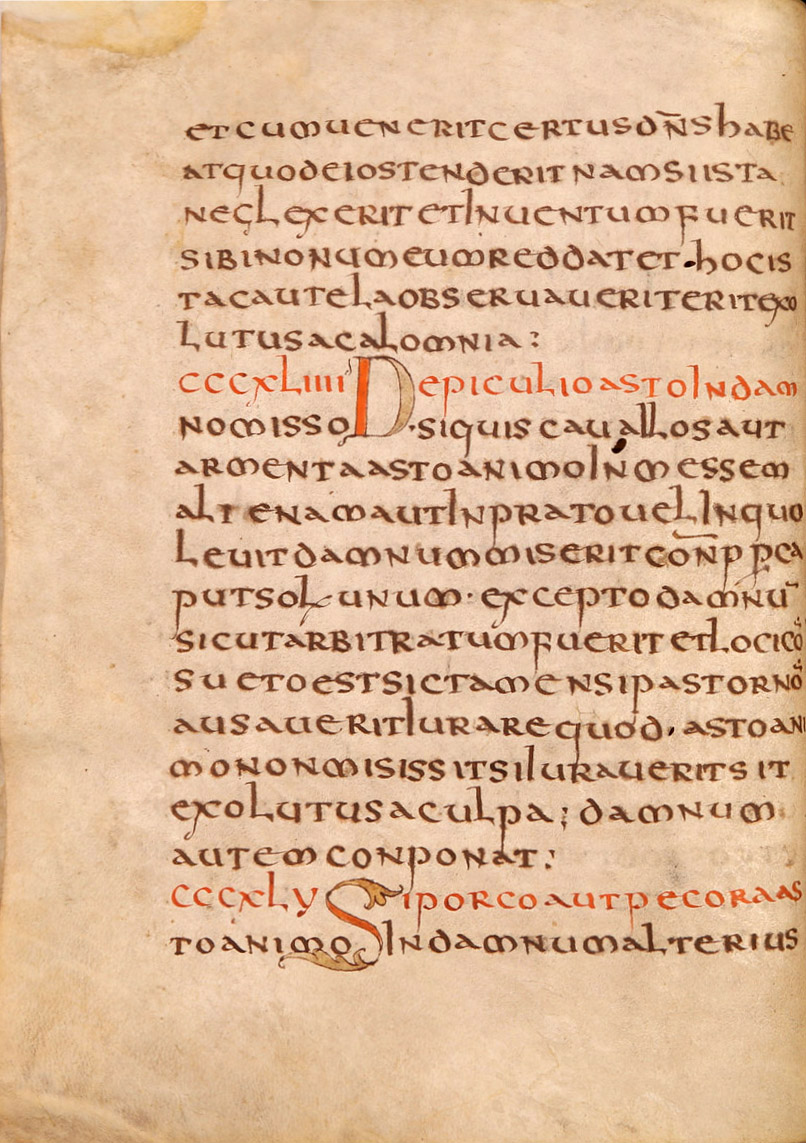 etcumueneritcertusdn̄shabe
atquodeiostenderitnamsiista
neclexeritetinuentumfuerit
sibinonumeumreddatet·hocis
tacautelaobserauaueriteritexo
lutusacalomnia:
cccxliiii Depiculioastoindam
nomisso·siquiscauallosaut
armentaastoanimoinmessem
alienamautinpratouelinquo
leuitdamnummiseritcon̄ppca
putsolunum·exceptodamnū
sicutarbitratumfueritetlocico
suetoestsictamensipastornō
ausaueritiurarequod·astoani
mononmisissitsiiuraueritsit
exolutusaculpa;damnum
autemconponat:
cccxlv Siporcoautpecoraas
toanimoindamnumalterius